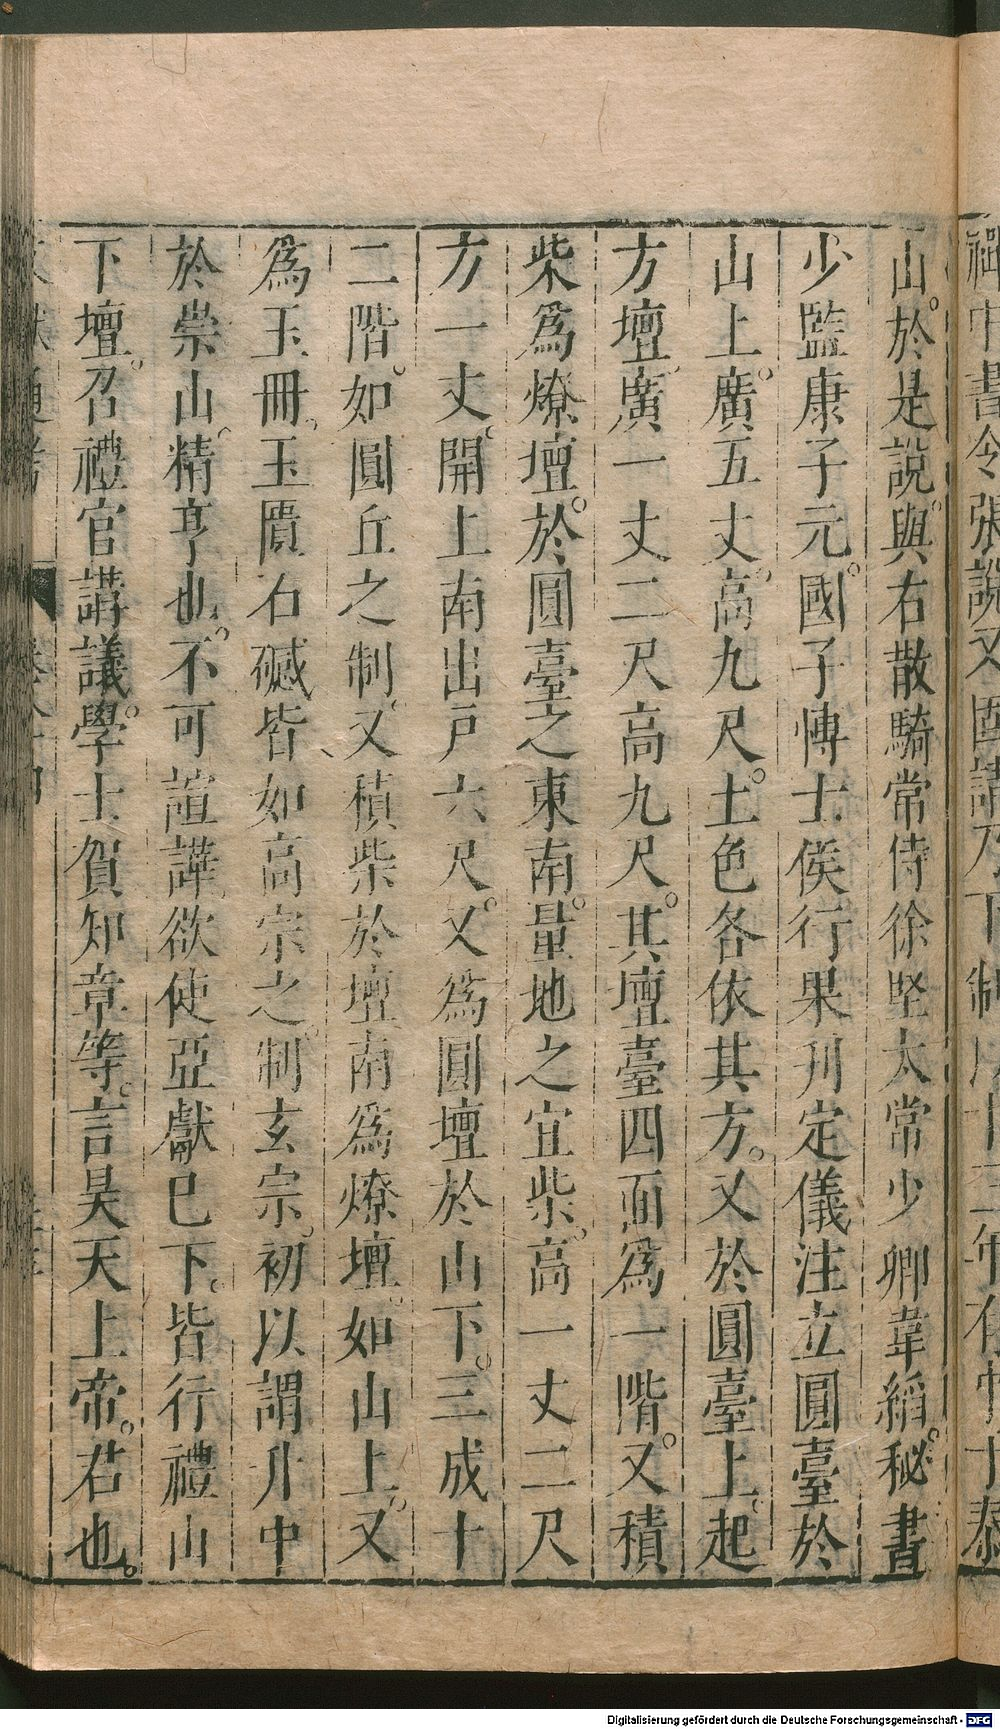 山。於是說與右散騎常侍徐堅太常少卿韋縚。秘書
少監康子元。國子博士侯行果刋定儀注立圓臺於
山上。廣五丈。高九尺。土色各依其方。又於圓臺上。起
方壇。廣一丈二尺高九尺。其壇臺四面爲一階。又積
柴爲燎壇。於圓臺之東南。量地之宜柴。高一丈二尺
方一丈。開上南出戶六尺。又爲圓壇於山下。三成十
二階。如圓丘之制。又積柴於壇南爲燎壇。如山上。又
爲玉冊。玉匱石䃭皆如高宗之。制玄宗。初以謂升中
於崇山。精享也。不可諠譁。欲使亞獻巳下。皆行禮山
下壇。召禮官講議。學士賀知章等。言昊天上帝。君也。
中書令張說又固請乃下制以十三年有
Digitalisierung gefördert durch die Deutsche Forschungsgemeinschaft - DFG